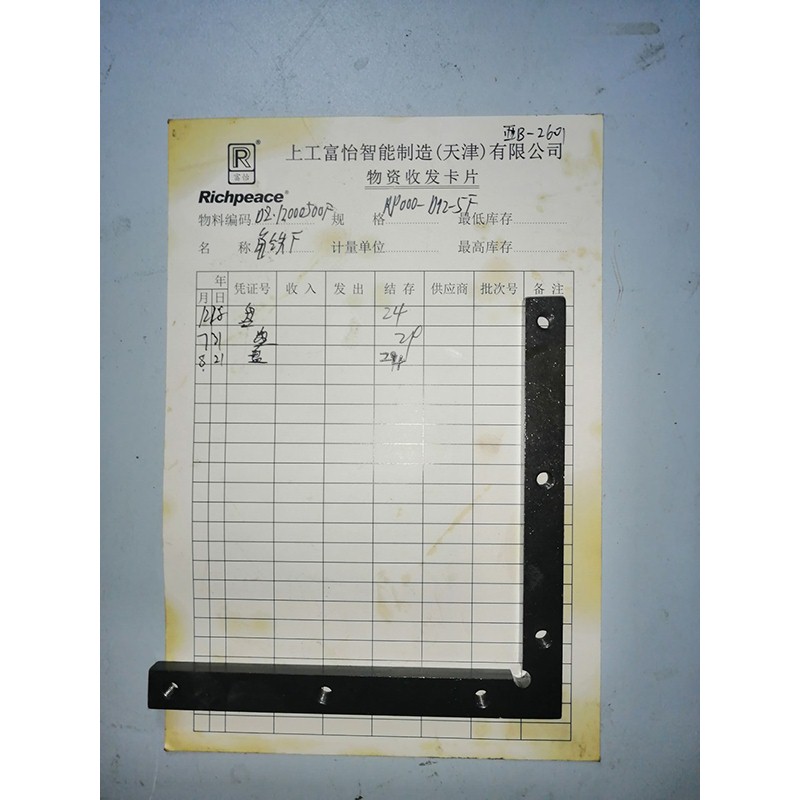 西B-2601
R
富怡
上工富怡智能制造(天津)有限公司
物资收发卡片
Richpeace
物料编码 规 格 最低库存
名 称 角铁F 计量单位 最高库存
年
月 日 凭证号 收入 发出 结存 供应商 批次号 备注
盘 24
7 21 盘
8 21 盘